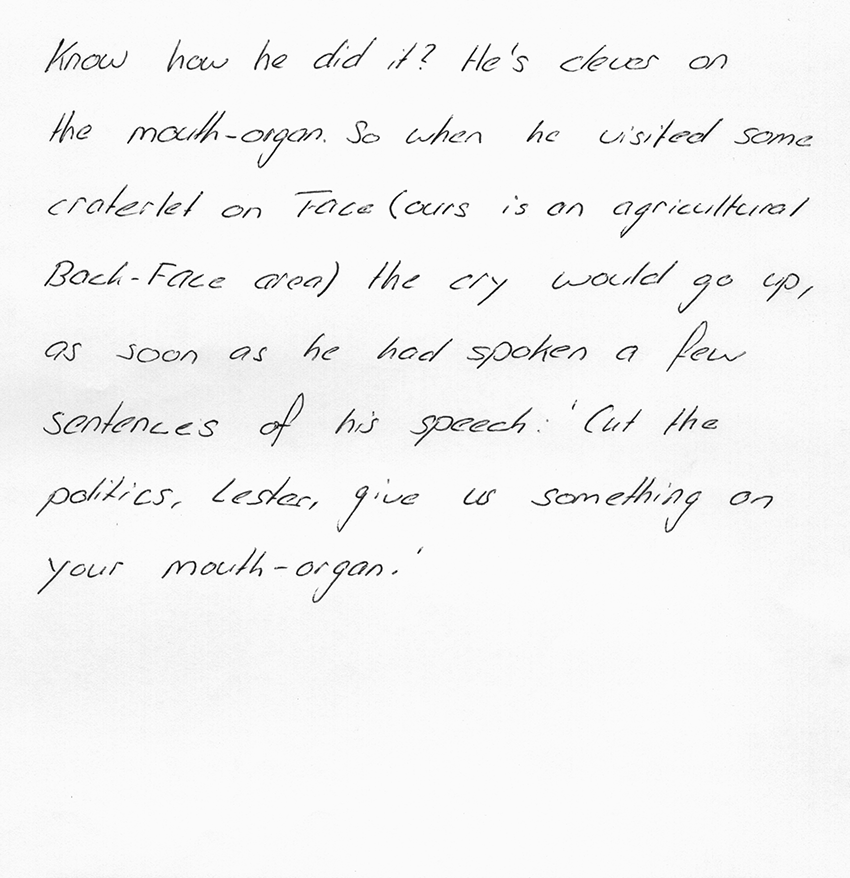 Know how he did it? He's clever on
the mouth-organ. So when he visited some
craterlet on Face (ours is an agricultural
Back-Face area) the cry would go up,
as soon as he had spoken a few
sentences of his speech: 'Cut the
politics, Lester, give us something on
your mouth-organ.'